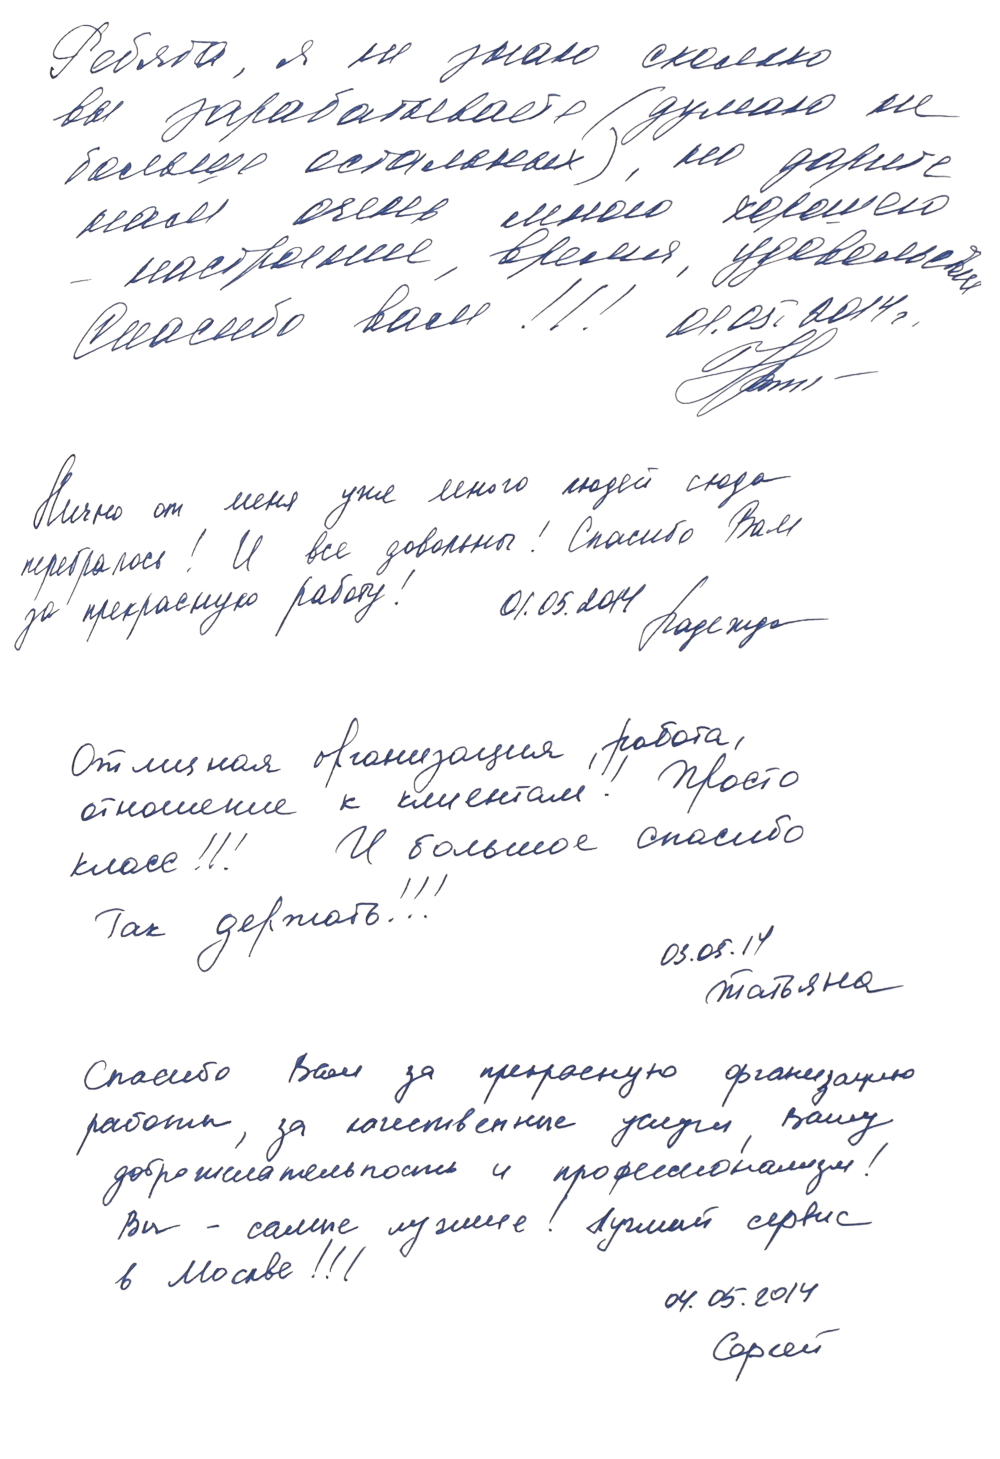 Ребята, я не знаю сколько
вы зарабатываете (думаю не
больше остальных), но дарите
нам очень много хорошего
- настроение, время, удовольствие
Спасибо вам!!! 01.05.2014г.
Лично от меня уже много людей сюда
перебралось! И все довольны! Спасибо Вам
за прекрасную работу! 01.05.2014 Надежда
Отличная организация, работа,
отношение к клиентам!! Просто
класс!!! И большое спасибо
Так держать!!!
03.05.14
Татьяна
Спасибо Вам за прекрасную организацию
работы, за качественные услуги, Вашу
доброжелательность и профессионализм!
Вы - самые лучшие! Лучший сервис
в Москве!!!
04.05.2014
Сергей